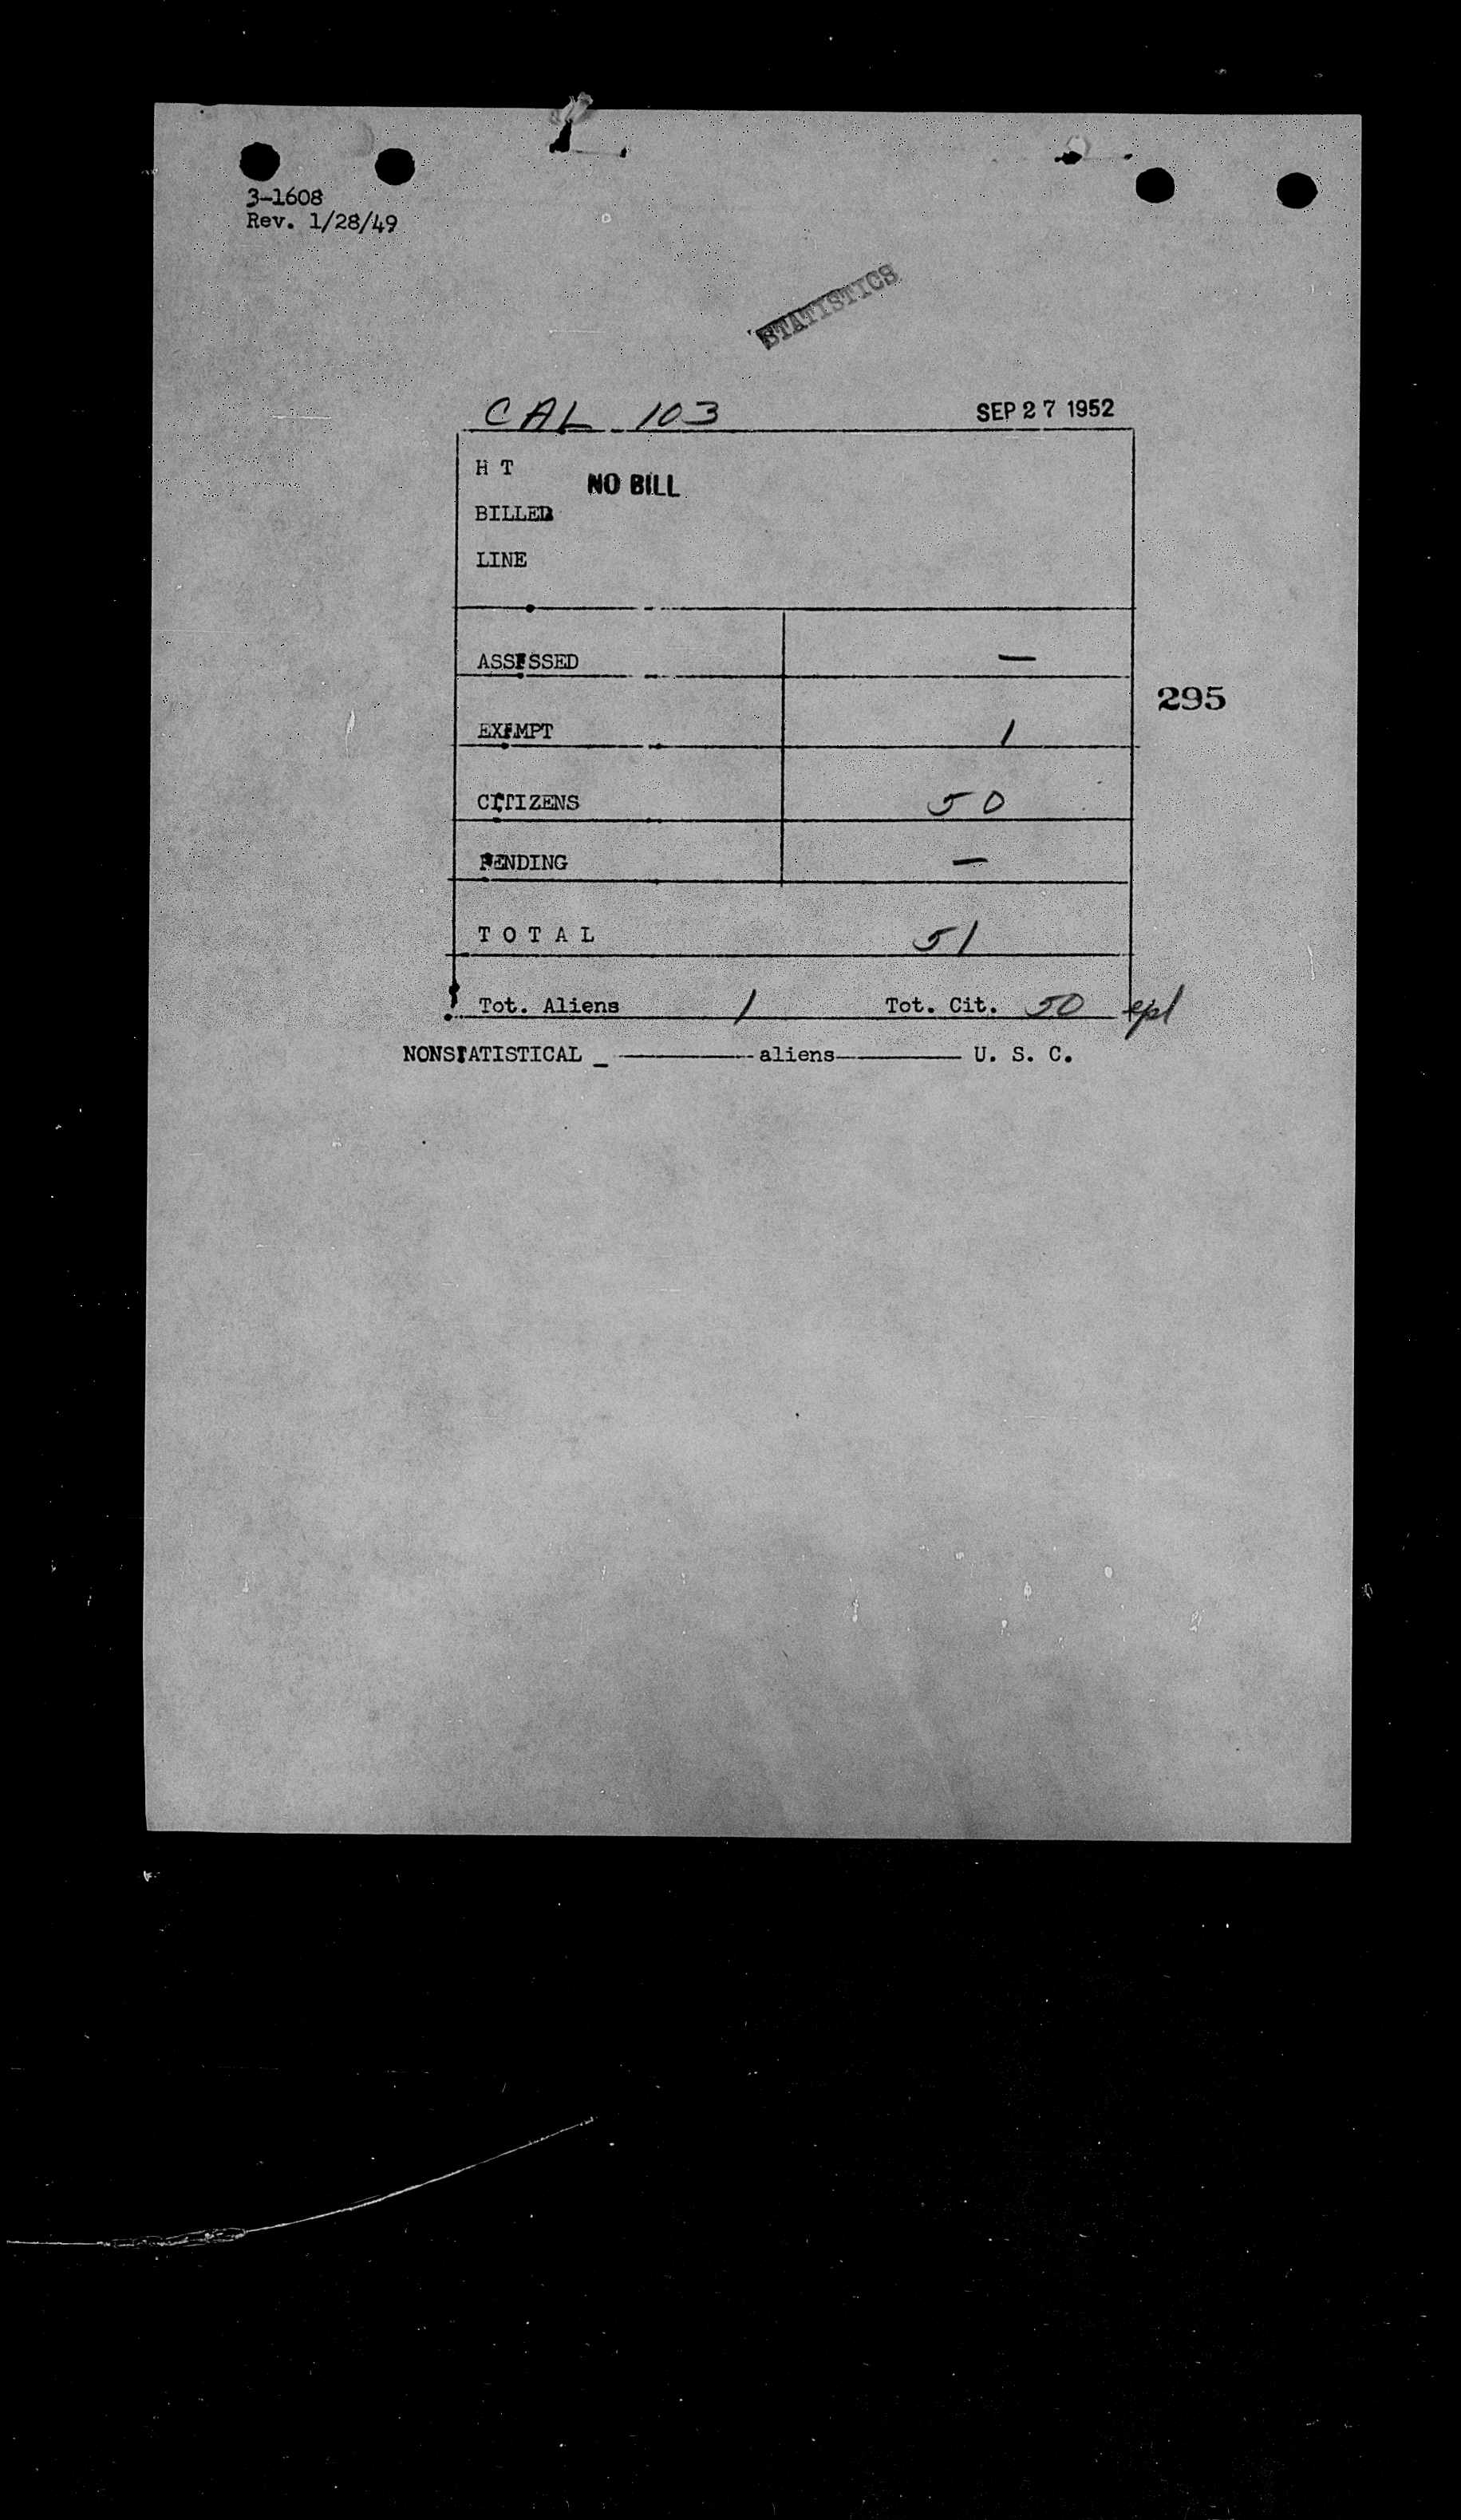 3-1608
Rev. 1/28/49
STATISTICS
CAL 103 SEP 27 1952
H T
NO BILL
BILLED
LINE
ASSESSED —
295
EXEMPT 1
CITIZENS 50
PENDING —
T O T A L 51
Tot. Aliens 1 Tot. Cit. 50
NONSTATISTICAL _ ———— aliens ———— U. S. C.